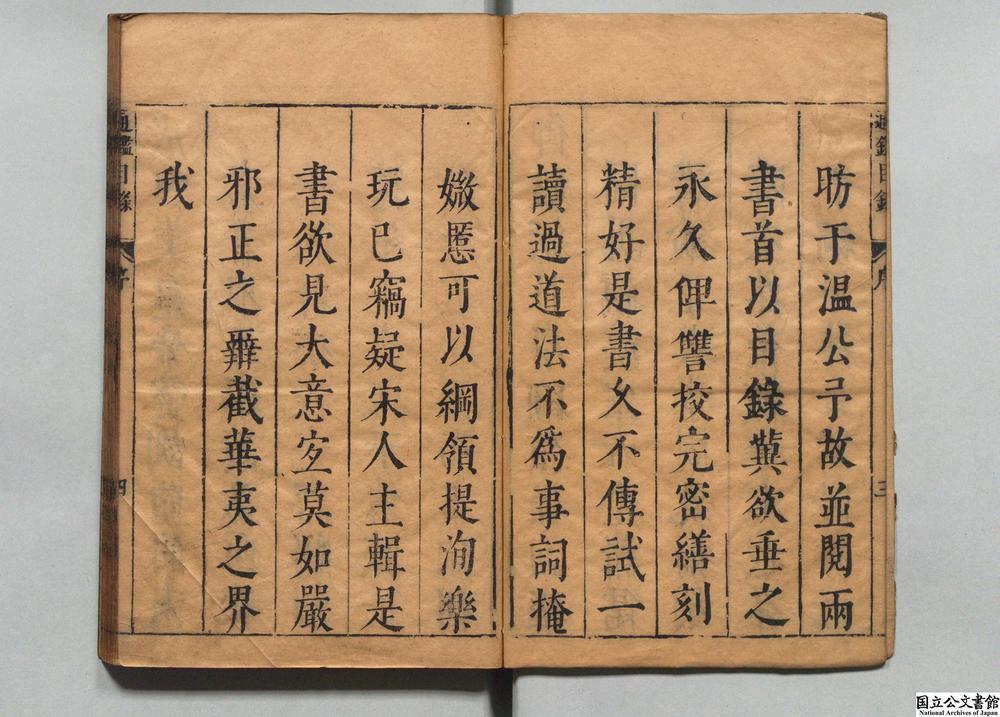 通鑑目錄 序 三
昉于温公予故並閱兩
書首以目錄冀欲垂之
永久俾讐挍完密繕刻
精好是書乆不傳試一
讀過道法不爲事詞掩
媺慝可以綱領提洵樂
玩已竊疑宋人主輯是
書欲見大意宜莫如嚴
邪正之辨截華夷之界
我
通鑑目錄 序 四
国立公文書館
National Archives of Japan